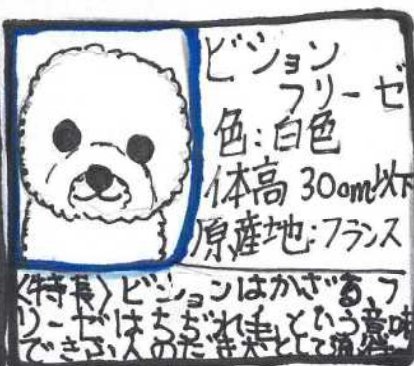 ビション
フリーゼ
色:白色
体高 30cm以下
原産地:フランス
〈特長〉ビションはかざる、フ
リーゼはちぢれ毛、という意味
できぞ人のだき犬として